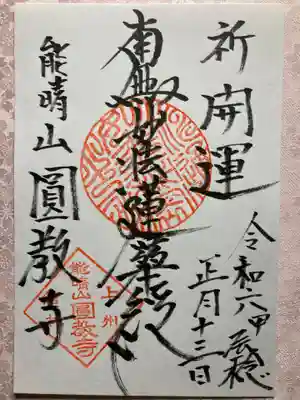 祈開運
令和六甲辰稔
正月十三日
南無妙法蓮華経
能晴山圓教寺
上州
能晴山
圓教寺